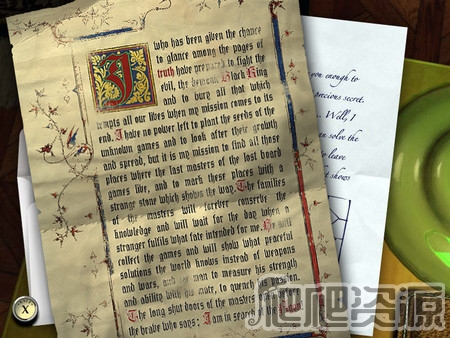 I who has been given the chance
to glance among the pages of
truth have prepared to fight the
evil, the demonic Black King
and to bury all that which
tempts all our likes when my mission comes to its
end. I have no power left to plant the seeds of the
unknown games and to look after their growth
and spread, but it is my mission to find all those
places where the last masters of the lost board
games live, and to mark these places with a
strange stone which shows the way. The families
of the masters will forever conserve the
knowledge and will wait for the day when a
stranger fulfils what fate intended for me. He will
collect the games and will show what peaceful
solutions the world knows instead of weapons
and wars, and man to measure his strength
and ability with his mate, to quench his passion.
The long shut doors of the masters open
the brave who says: I am in search of the
you enough to
precious secret.
... Well, I
can solve the
leave
shows
X
爬爬资源